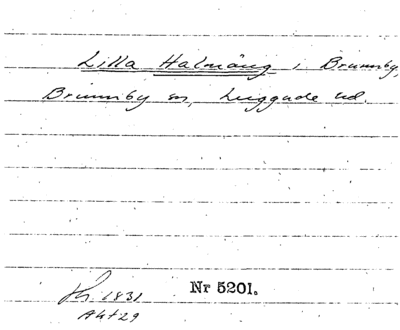 Lilla Halmäng i Brunnby,
Brunnby sn, Luggude hd.
Nr 5201.
1831
Akt 29